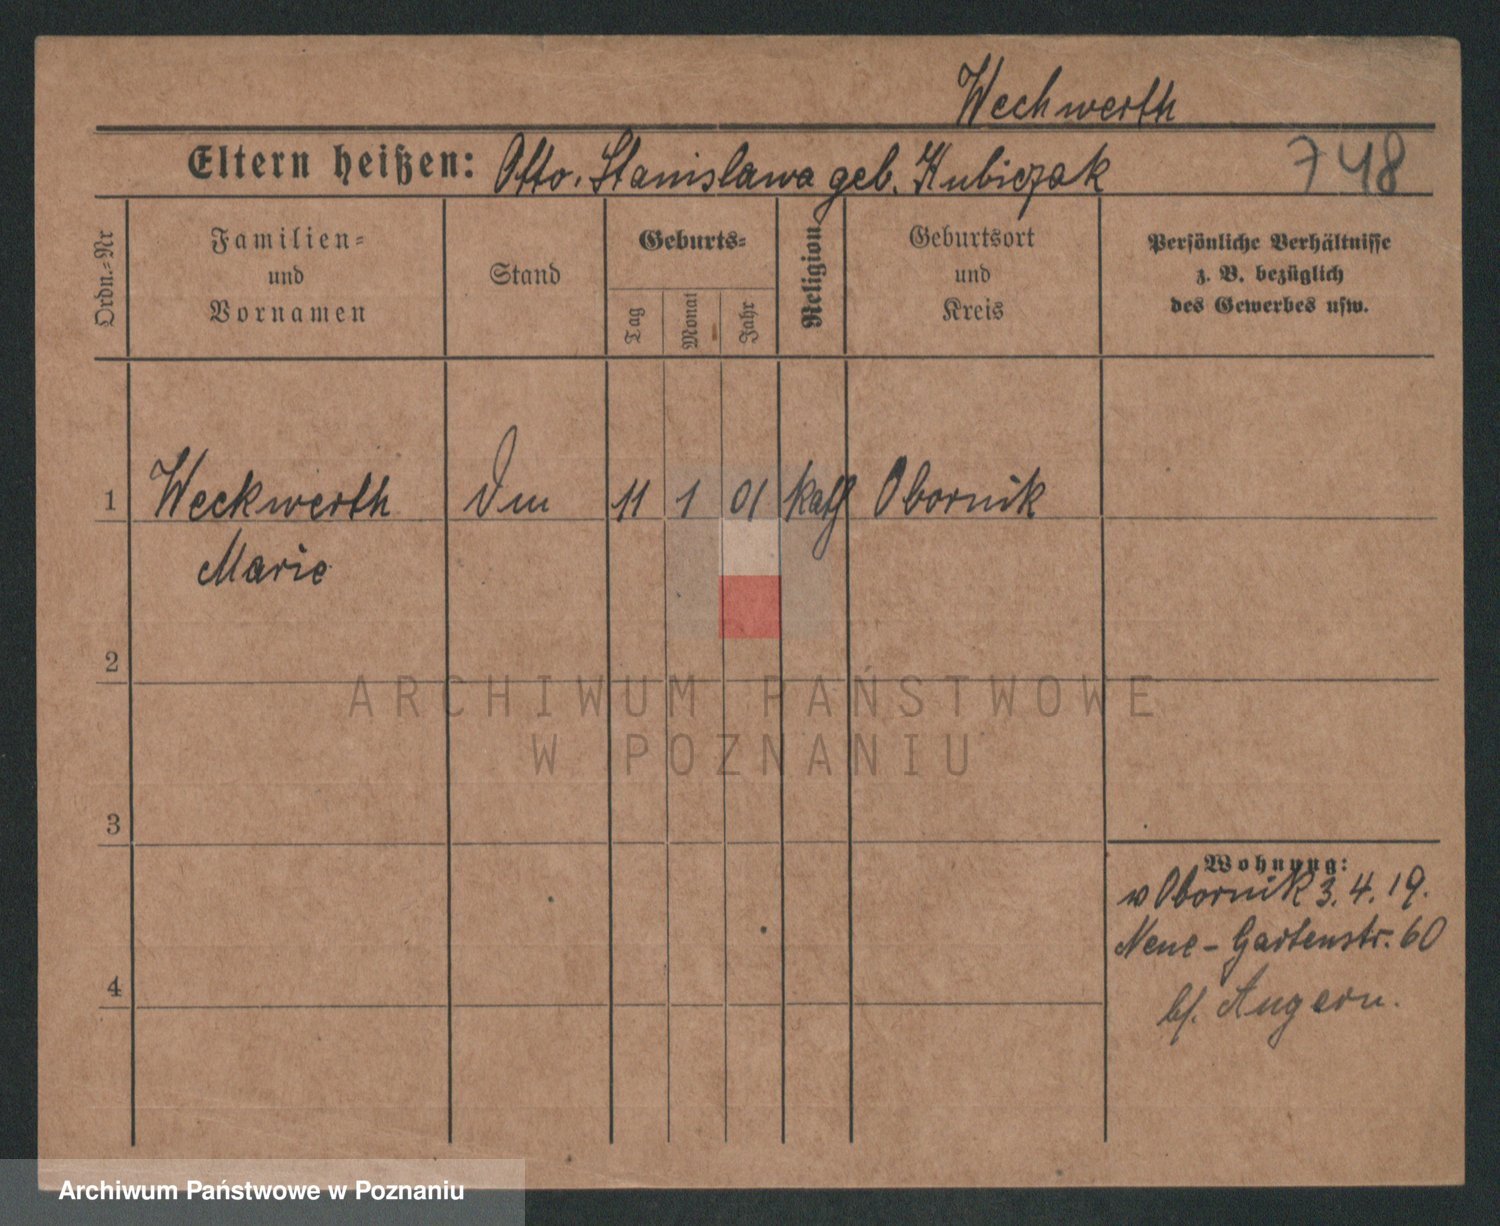 Wechwerth
Eltern heißen: Otto. Stanislawa geb. Kubiczak
748
Ordn.=Nr
Familien=
und
Vornamen
Stand
Geburts=
Tag
Monat
Jahr
Religion
Geburtsort
und
Kreis
Persönliche Verhältnisse
z. B. bezüglich
des Gewerbes usw.
1 Weckwerth 11 1 01 kath Obornik
Marie
2
3
4
Wohnung:
v Obornik 3. 4. 19.
Neue-Gartenstr. 60
bf. Angern.
ARCHIWUM PAŃSTWOWE
W POZNANIU
Archiwum Państwowe w Poznaniu